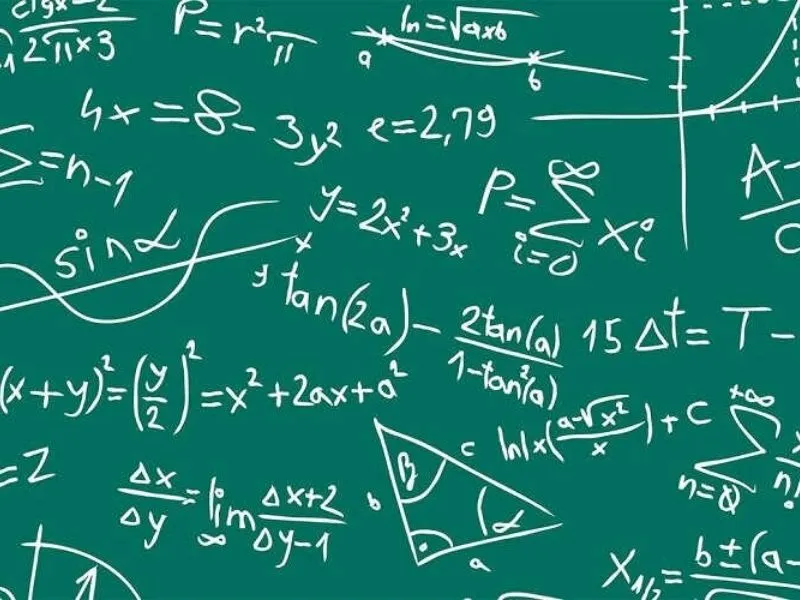 2π×3
P=r²π
ln=√axb
a
b
4x=8-3y²
e=2,79
Σ=n-1
y=2x²+3x
P=Σ xi
∞
i=0
A-
sinα
x
y
tan(2a)- 2tan(a)
1-tan²(a)
15 Δt=T-
(x+y)²=(y/2)²=x²+2ax+a²
ln|x(a-√x²/x)+C
+∞
Σ
n=0
n!
=Z
Δx/Δy=lim Δx+2/Δy-1
∞
β
c
b
α
a
X1/2=b±(a-